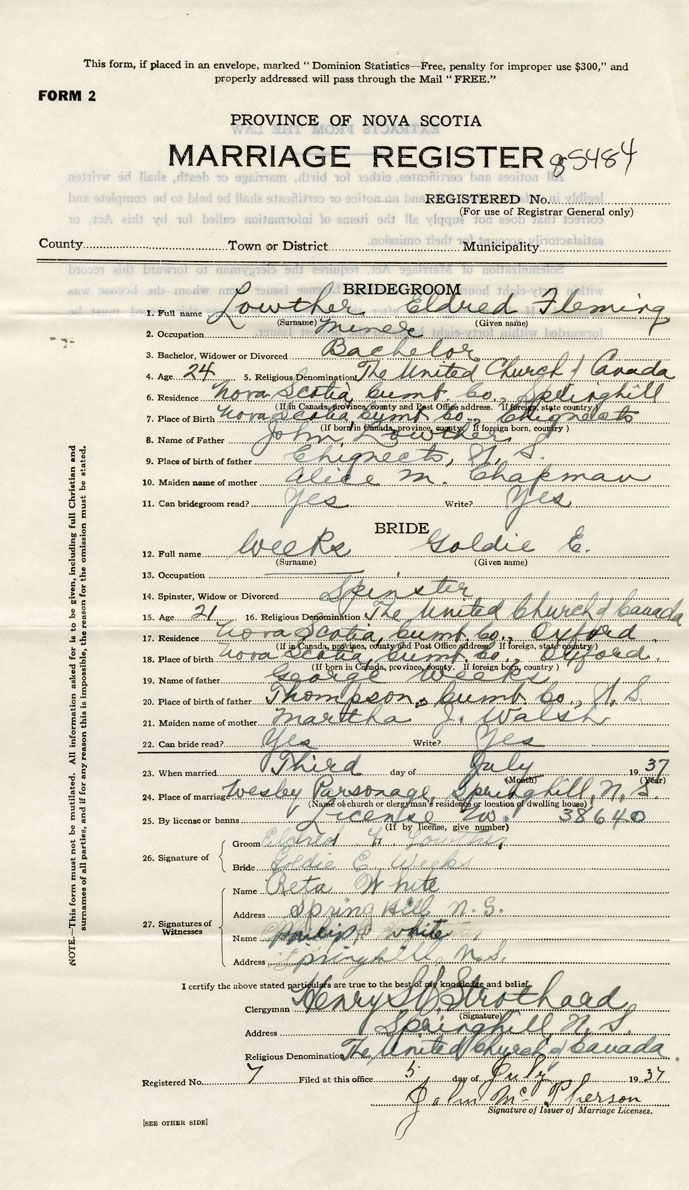 This form, if placed in an envelope, marked "Dominion Statistics—Free, penalty for improper use $300," and
properly addressed will pass through the Mail "FREE."
FORM 2
PROVINCE OF NOVA SCOTIA
MARRIAGE REGISTER 85484
REGISTERED No.
(For use of Registrar General only)
County Town or District Municipality
BRIDEGROOM
1. Full name Lowther Eldred Fleming
(Surname) (Given name)
2. Occupation Miner
3. Bachelor, Widower or Divorced Bachelor
4. Age 24 5. Religious Denomination The United Church of Canada
6. Residence Nova Scotia, Cumb. Co., Springhill
(If in Canada, province, county and Post Office address. If foreign, state country)
7. Place of Birth Nova Scotia, Cumb. Co., Chignecto
(If born in Canada, province, county. If foreign born, country)
8. Name of Father John Lowther
9. Place of birth of father Chignecto, N. S.
10. Maiden name of mother Alice M. Chapman
11. Can bridegroom read? Yes Write? Yes
BRIDE
12. Full name Weeks Goldie E.
(Surname) (Given name)
13. Occupation
14. Spinster, Widow or Divorced Spinster
15. Age 21 16. Religious Denomination The United Church of Canada
17. Residence Nova Scotia, Cumb. Co., Oxford
(If in Canada, province, county and Post Office address. If foreign, state country)
18. Place of birth Nova Scotia, Cumb. Co., Oxford
(If born in Canada, province, county. If foreign born, country)
19. Name of father George Weeks
20. Place of birth of father Thompson, Cumb Co., N. S
21. Maiden name of mother Martha J. Walsh
22. Can bride read? Yes Write? Yes
23. When married Third day of July 19 37
(Month) (Year)
24. Place of marriage Wesley Parsonage, Springhill, N. S.
(Name of church or clergyman's residence or location of dwelling house)
25. By license or banns License No. 38640
(If by license, give number)
26. Signature of
Groom Eldred F. Lowther
Bride Goldie E. Weeks
27. Signatures of Witnesses
Name Reta White
Address Springhill N.S.
Name Philip White
Address Springhill, N.S.
I certify the above stated particulars are true to the best of my knowledge and belief.
Clergyman Henry S. B. Strothard
(Signature)
Address Springhill N.S.
Religious Denomination The United Church of Canada.
Registered No. 7 Filed at this office 5 day of July 19 37
John McPherson
Signature of Issuer of Marriage Licenses.
[SEE OTHER SIDE]
NOTE.—This form must not be mutilated. All information asked for is to be given, including full Christian and
surnames of all parties, and if for any reason this is impossible, the reason for the omission must be stated.